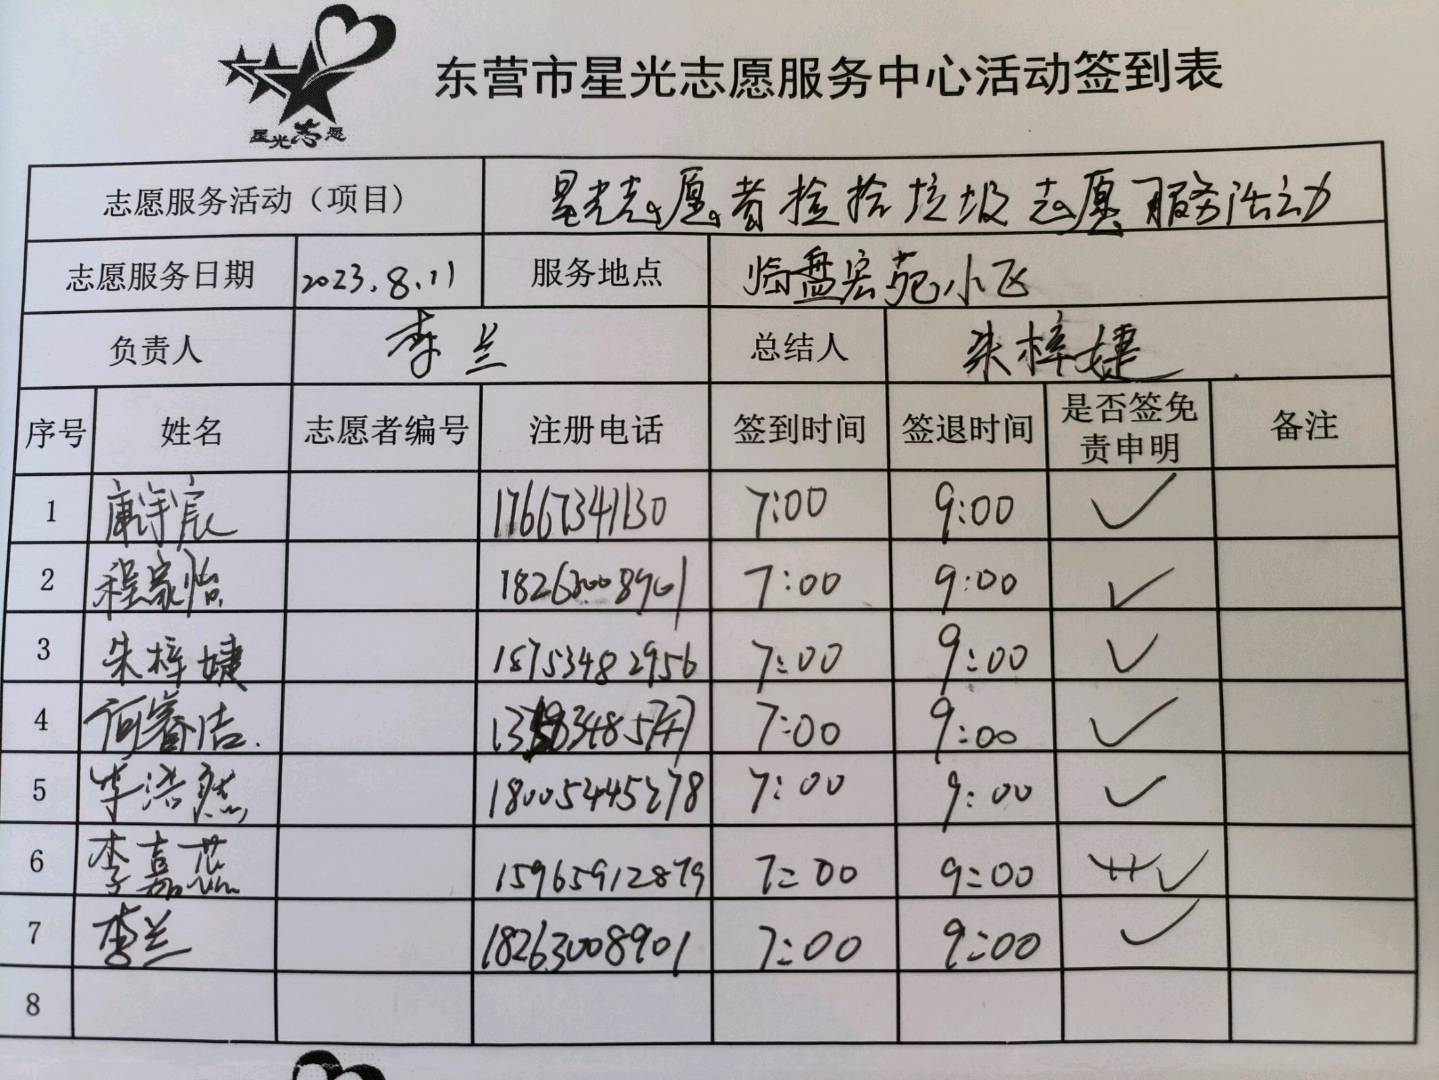 星光志愿
东营市星光志愿服务中心活动签到表
志愿服务活动（项目） 星光志愿者捡拾垃圾志愿服务活动
志愿服务日期 2023.8.11 服务地点 临盘宏苑小区
负责人 李兰 总结人 朱梓婕
序号 姓名 志愿者编号 注册电话 签到时间 签退时间 是否签免责申明 备注
1 17667341130 7:00 9:00 ✓
2 程家怡 18263008901 7:00 9:00 ✓
3 朱梓婕 18753482956 7:00 9:00 ✓
4 何睿洁 7:00 9:00 ✓
5 李浩然 18005445278 7:00 9:00 ✓
6 李嘉芯 15965912879 7:00 9:00 ✓
7 李兰 18263008901 7:00 9:00 ✓
8